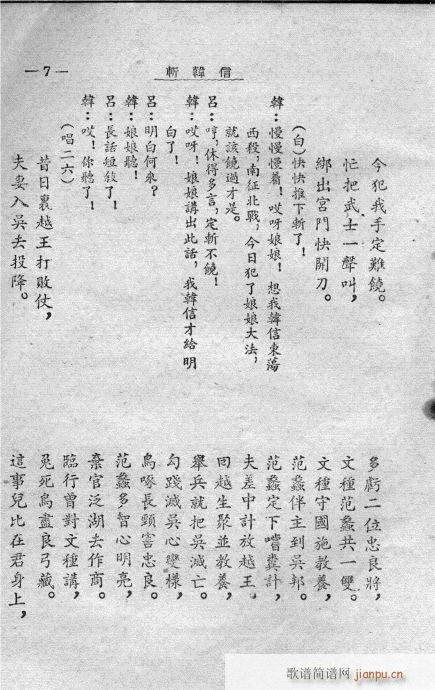 斬韓信
—7—
今犯我手定難饒。
忙把武士一聲叫，
綁出宮門快開刀。
(白)快快推下斬了！
韓：慢慢慢着！哎呀娘娘！想我韓信東蕩
西殺，南征北戰，今日犯了娘娘大法，
就該饒過才是。
呂：哼，休得多言，定斬不饒！
韓：哎呀！娘娘講出此話，我韓信才給明
白了！
呂：明白何來？
韓：娘娘聽！
呂：長話短敍了！
韓：哎！你聽了！
(唱二六)
昔日裏越王打敗仗，
夫妻入吳去投降。
多虧二位忠良將，
文種范蠡共一雙。
文種守國施教養，
范蠡伴主到吳邦。
范蠡定下嚐糞計，
夫差中計放越王。
回越生聚並教養，
舉兵就把吳滅亡。
勾踐滅吳心變樣，
鳥喙長頸害忠良。
范蠡多智心明亮，
棄官泛湖去作商。
臨行曾對文種講，
兎死鳥盡良弓藏。
這事兒比在君身上，
歌谱简谱网
jianpu.cn